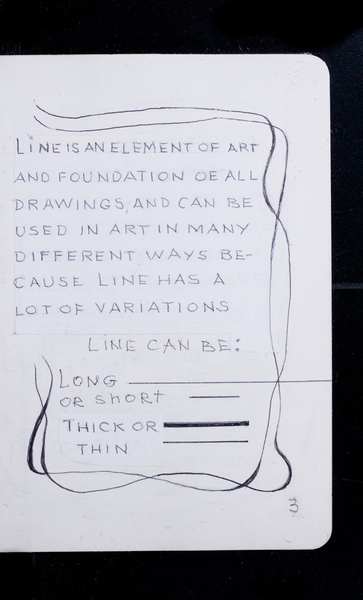 LINE IS AN ELEMENT OF ART
AND FOUNDATION OF ALL
DRAWINGS, AND CAN BE
USED IN ART IN MANY
DIFFERENT WAYS BE-
CAUSE LINE HAS A
LOT OF VARIATIONS
LINE CAN BE:
LONG
OR SHORT
THICK OR
THIN
3